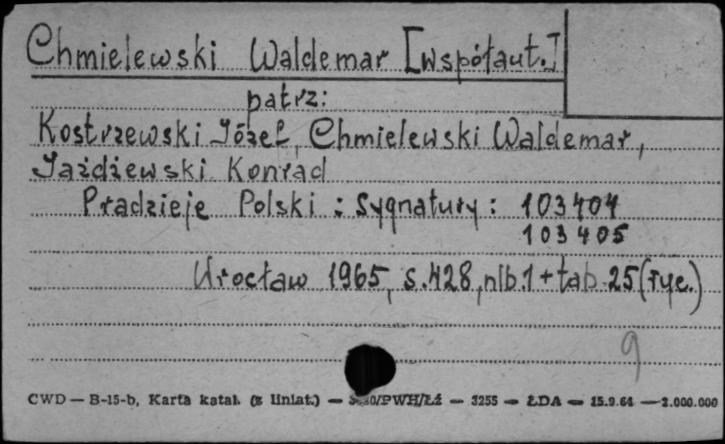 Chmielewski Waldemar [współaut.]
patrz:
Kostrzewski Józef, Chmielewski Waldemar,
Jażdżewski Konrad
Pradzieje Polski : Sygnatury: 103404
103405
Wrocław 1965, s.428, nlb.1+tab.25(ryc.)
9
CWD — B-15-b, Karta katal. (z liniat.) — /PWH/Łź — 3255 — ŁDA — 15.9.64 — 2.000.000